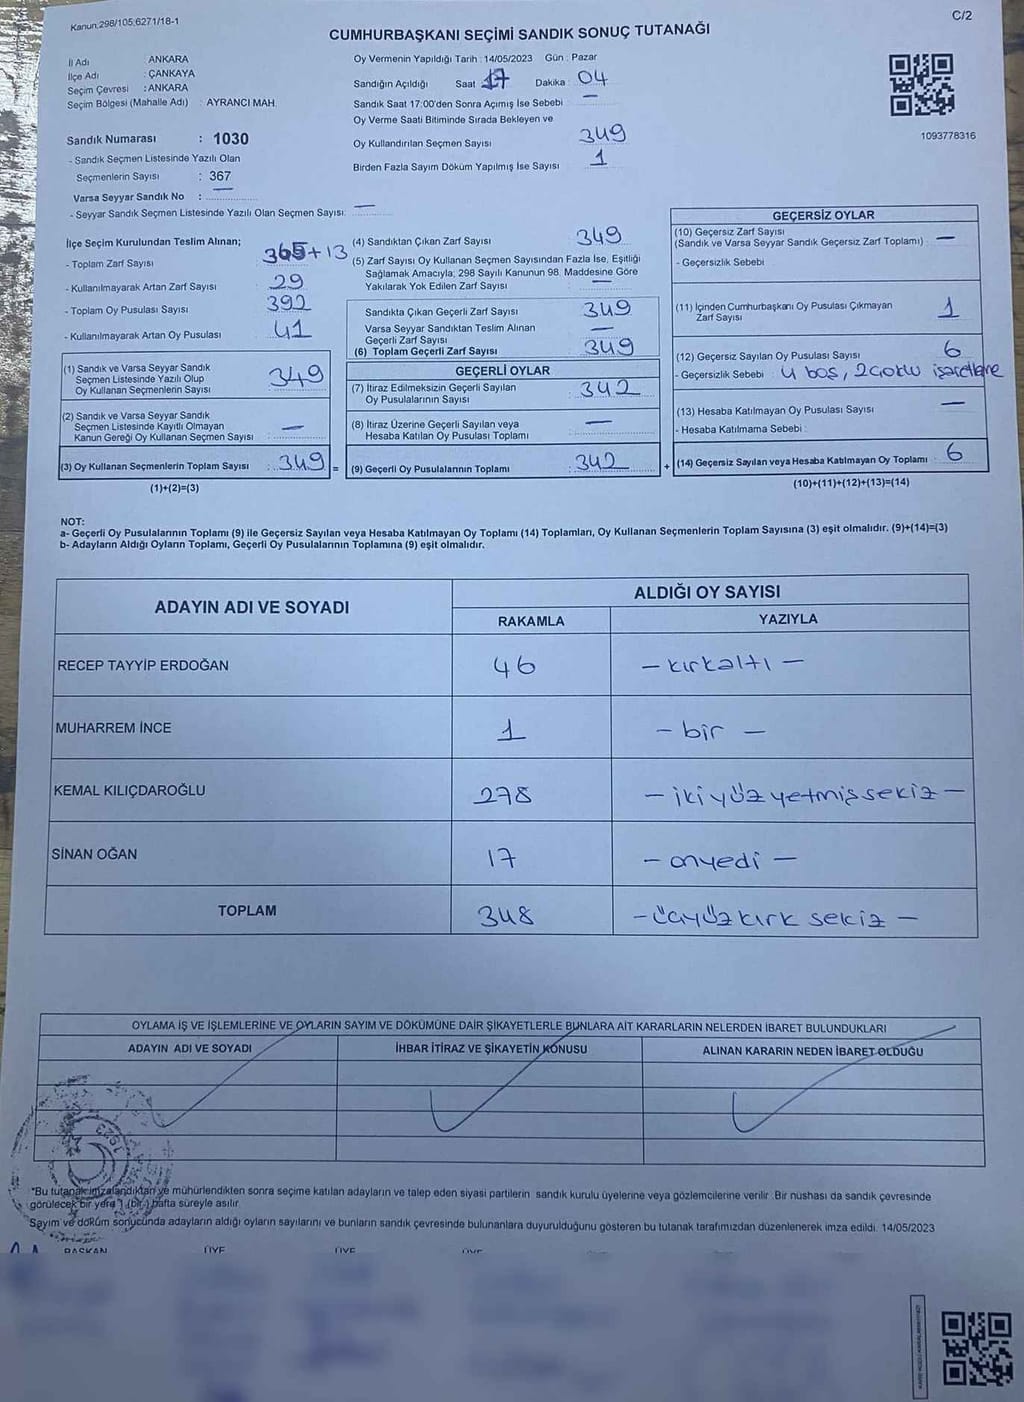 Kanun:298/105;6271/18-1
C/2
CUMHURBAŞKANI SEÇİMİ SANDIK SONUÇ TUTANAĞI
İl Adı : ANKARA
İlçe Adı : ÇANKAYA
Seçim Çevresi : ANKARA
Seçim Bölgesi (Mahalle Adı) : AYRANCI MAH.
Sandık Numarası : 1030
- Sandık Seçmen Listesinde Yazılı Olan
Seçmenlerin Sayısı : 367
Varsa Seyyar Sandık No : —
- Seyyar Sandık Seçmen Listesinde Yazılı Olan Seçmen Sayısı: —
Oy Vermenin Yapıldığı Tarih : 14/05/2023 Gün : Pazar
Sandığın Açıldığı Saat 17 Dakika : 04
Sandık Saat 17:00'den Sonra Açımış İse Sebebi —
Oy Verme Saati Bitiminde Sırada Bekleyen ve
Oy Kullandırılan Seçmen Sayısı 349
Birden Fazla Sayım Döküm Yapılmış İse Sayısı 1
1093778316
İlçe Seçim Kurulundan Teslim Alınan;
- Toplam Zarf Sayısı 365+13
- Kullanılmayarak Artan Zarf Sayısı 29
- Toplam Oy Pusulası Sayısı 392
- Kullanılmayarak Artan Oy Pusulası 41
(1) Sandık ve Varsa Seyyar Sandık
Seçmen Listesinde Yazılı Olup
Oy Kullanan Seçmenlerin Sayısı 349
(2) Sandık ve Varsa Seyyar Sandık
Seçmen Listesinde Kayıtlı Olmayan
Kanun Gereği Oy Kullanan Seçmen Sayısı —
(3) Oy Kullanan Seçmenlerin Toplam Sayısı : 349 =
(1)+(2)=(3)
(4) Sandıktan Çıkan Zarf Sayısı 349
(5) Zarf Sayısı Oy Kullanan Seçmen Sayısından Fazla İse, Eşitliği
Sağlamak Amacıyla; 298 Sayılı Kanunun 98. Maddesine Göre
Yakılarak Yok Edilen Zarf Sayısı —
Sandıkta Çıkan Geçerli Zarf Sayısı 349
Varsa Seyyar Sandıktan Teslim Alınan
Geçerli Zarf Sayısı —
(6) Toplam Geçerli Zarf Sayısı 349
GEÇERLİ OYLAR
(7) İtiraz Edilmeksizin Geçerli Sayılan
Oy Pusulalarının Sayısı : 342
(8) İtiraz Üzerine Geçerli Sayılan veya
Hesaba Katılan Oy Pusulası Toplamı —
(9) Geçerli Oy Pusulalarının Toplamı : 342 +
GEÇERSİZ OYLAR
(10) Geçersiz Zarf Sayısı
(Sandık ve Varsa Seyyar Sandık Geçersiz Zarf Toplamı) : —
- Geçersizlik Sebebi :
(11) İçinden Cumhurbaşkanı Oy Pusulası Çıkmayan
Zarf Sayısı 1
(12) Geçersiz Sayılan Oy Pusulası Sayısı 6
- Geçersizlik Sebebi : 4 boş, 2 çoklu işaretleme
(13) Hesaba Katılmayan Oy Pusulası Sayısı —
- Hesaba Katılmama Sebebi :
(14) Geçersiz Sayılan veya Hesaba Katılmayan Oy Toplamı : 6
(10)+(11)+(12)+(13)=(14)
NOT:
a- Geçerli Oy Pusulalarının Toplamı (9) ile Geçersiz Sayılan veya Hesaba Katılmayan Oy Toplamı (14) Toplamları, Oy Kullanan Seçmenlerin Toplam Sayısına (3) eşit olmalıdır. (9)+(14)=(3)
b- Adayların Aldığı Oyların Toplamı, Geçerli Oy Pusulalarının Toplamına (9) eşit olmalıdır.
ADAYIN ADI VE SOYADI
ALDIĞI OY SAYISI
RAKAMLA YAZIYLA
RECEP TAYYİP ERDOĞAN 46 — kırkaltı —
MUHARREM İNCE 1 — bir —
KEMAL KILIÇDAROĞLU 278 — ikiyüzyetmişsekiz —
SİNAN OĞAN 17 — onyedi —
TOPLAM 348 — üçyüzkırk sekiz —
OYLAMA İŞ VE İŞLEMLERİNE VE OYLARIN SAYIM VE DÖKÜMÜNE DAİR ŞİKAYETLERLE BUNLARA AİT KARARLARIN NELERDEN İBARET BULUNDUKLARI
ADAYIN ADI VE SOYADI İHBAR İTİRAZ VE ŞİKAYETİN KONUSU ALINAN KARARIN NEDEN İBARET OLDUĞU
1923
"Bu tutanak imzalandıktan ve mühürlendikten sonra seçime katılan adayların ve talep eden siyasi partilerin sandık kurulu üyelerine veya gözlemcilerine verilir. Bir nüshası da sandık çevresinde
görülecek bir yere 1 (bir) hafta süreyle asılır
Sayım ve döküm sonucunda adayların aldığı oyların sayılarını ve bunların sandık çevresinde bulunanlara duyurulduğunu gösteren bu tutanak tarafımızdan düzenlenerek imza edildi. 14/05/2023
BAŞKAN ÜYE ÜYE ÜYE